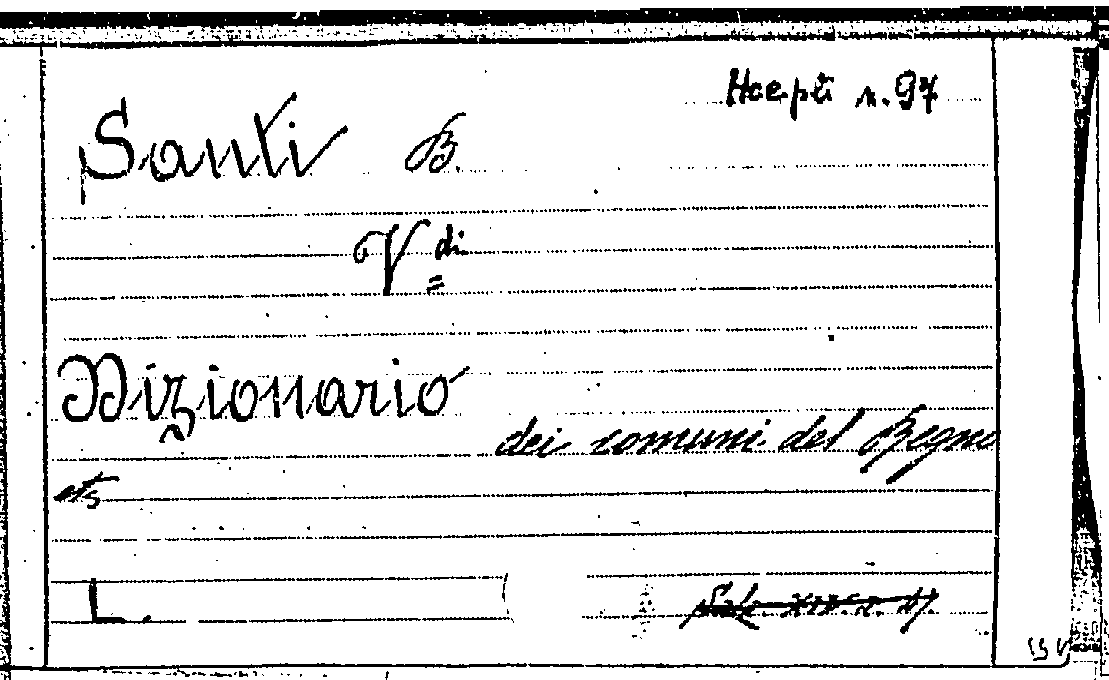 Hoepli n. 97
Santi B.
V di
=
Dizionario
dei comuni del Regno
etc
L.